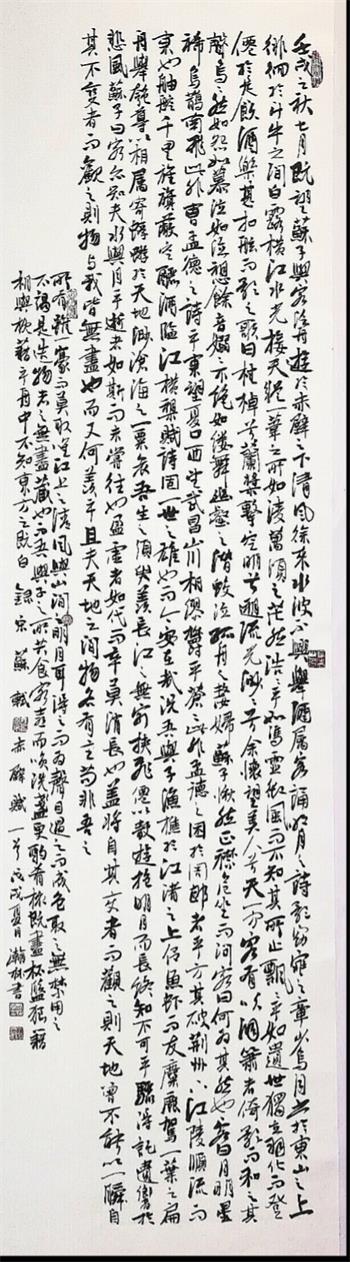 壬戌之秋七月既望蘇子與客泛舟遊於赤壁之下清風徐來水波不興舉酒屬客誦明月之詩歌窈窕之章少焉月出於東山之上
徘徊於斗牛之間白露橫江水光接天縱一葦之所如凌萬頃之茫然浩浩乎如馮虛御風而不知其所止飄飄乎如遺世獨立羽化而登
僊於是飲酒樂甚扣舷而歌之歌曰桂棹兮蘭槳擊空明兮遡流光渺渺兮余懷望美人兮天一方客有吹洞簫者倚歌而和之其
聲嗚嗚然如怨如慕如泣如訴餘音嫋嫋不絕如縷舞幽壑之潛蛟泣孤舟之嫠婦蘇子愀然正襟危坐而問客曰何為其然也客曰月明星
稀烏鵲南飛此非曹孟德之詩乎東望夏口西望武昌山川相繆鬱乎蒼蒼此非孟德之困於周郎者乎方其破荊州下江陵順流而
東也舳艫千里旌旗蔽空釃酒臨江橫槊賦詩固一世之雄也而今安在哉況吾與子漁樵於江渚之上侶魚蝦而友麋鹿駕一葉之扁
舟舉匏尊以相屬寄蜉蝣於天地渺滄海之一粟哀吾生之須臾羨長江之無窮挾飛僊以遨遊抱明月而長終知不可乎驟得託遺響於
悲風蘇子曰客亦知夫水與月乎逝者如斯而未嘗往也盈虛者如代而卒莫消長也蓋將自其變者而觀之則天地曾不能以一瞬自
其不變者而觀之則物與我皆無盡也而又何羨乎且夫天地之間物各有主苟非吾之
所有雖一毫而莫取惟江上之清風與山間之明月耳得之而為聲目遇之而成色取之無禁用之
不竭是造物者之無盡藏也而吾與子之所共食客喜而笑洗盞更酌肴核既盡杯盤狼藉
相與枕藉乎舟中不知東方之既白 錄宋蘇軾赤壁賦一首 戊戌夏月瀚林書